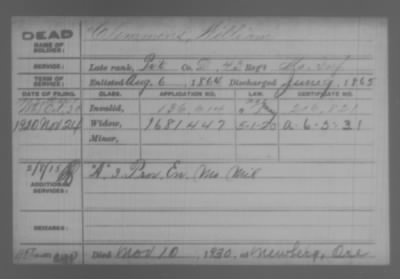 DEAD Clemmens, William
NAME OF SOLDIER:
SERVICE: Late rank, Pvt Co. D, 43 Reg't Mo. Inf
TERM OF SERVICE: Enlisted Aug. 6, 1864 Discharged June 1865
DATE OF FILING. CLASS. APPLICATION NO. LAW. CERTIFICATE NO.
Invalid,
1930 Nov 24 Widow, 1681447 5-1-20 A-6-3-31
Minor,
ADDITIONAL SERVICES: "K" 3 Prov. En. Mo Mil
REMARKS:
Died Nov 10, 1930, at Newberg, Ore